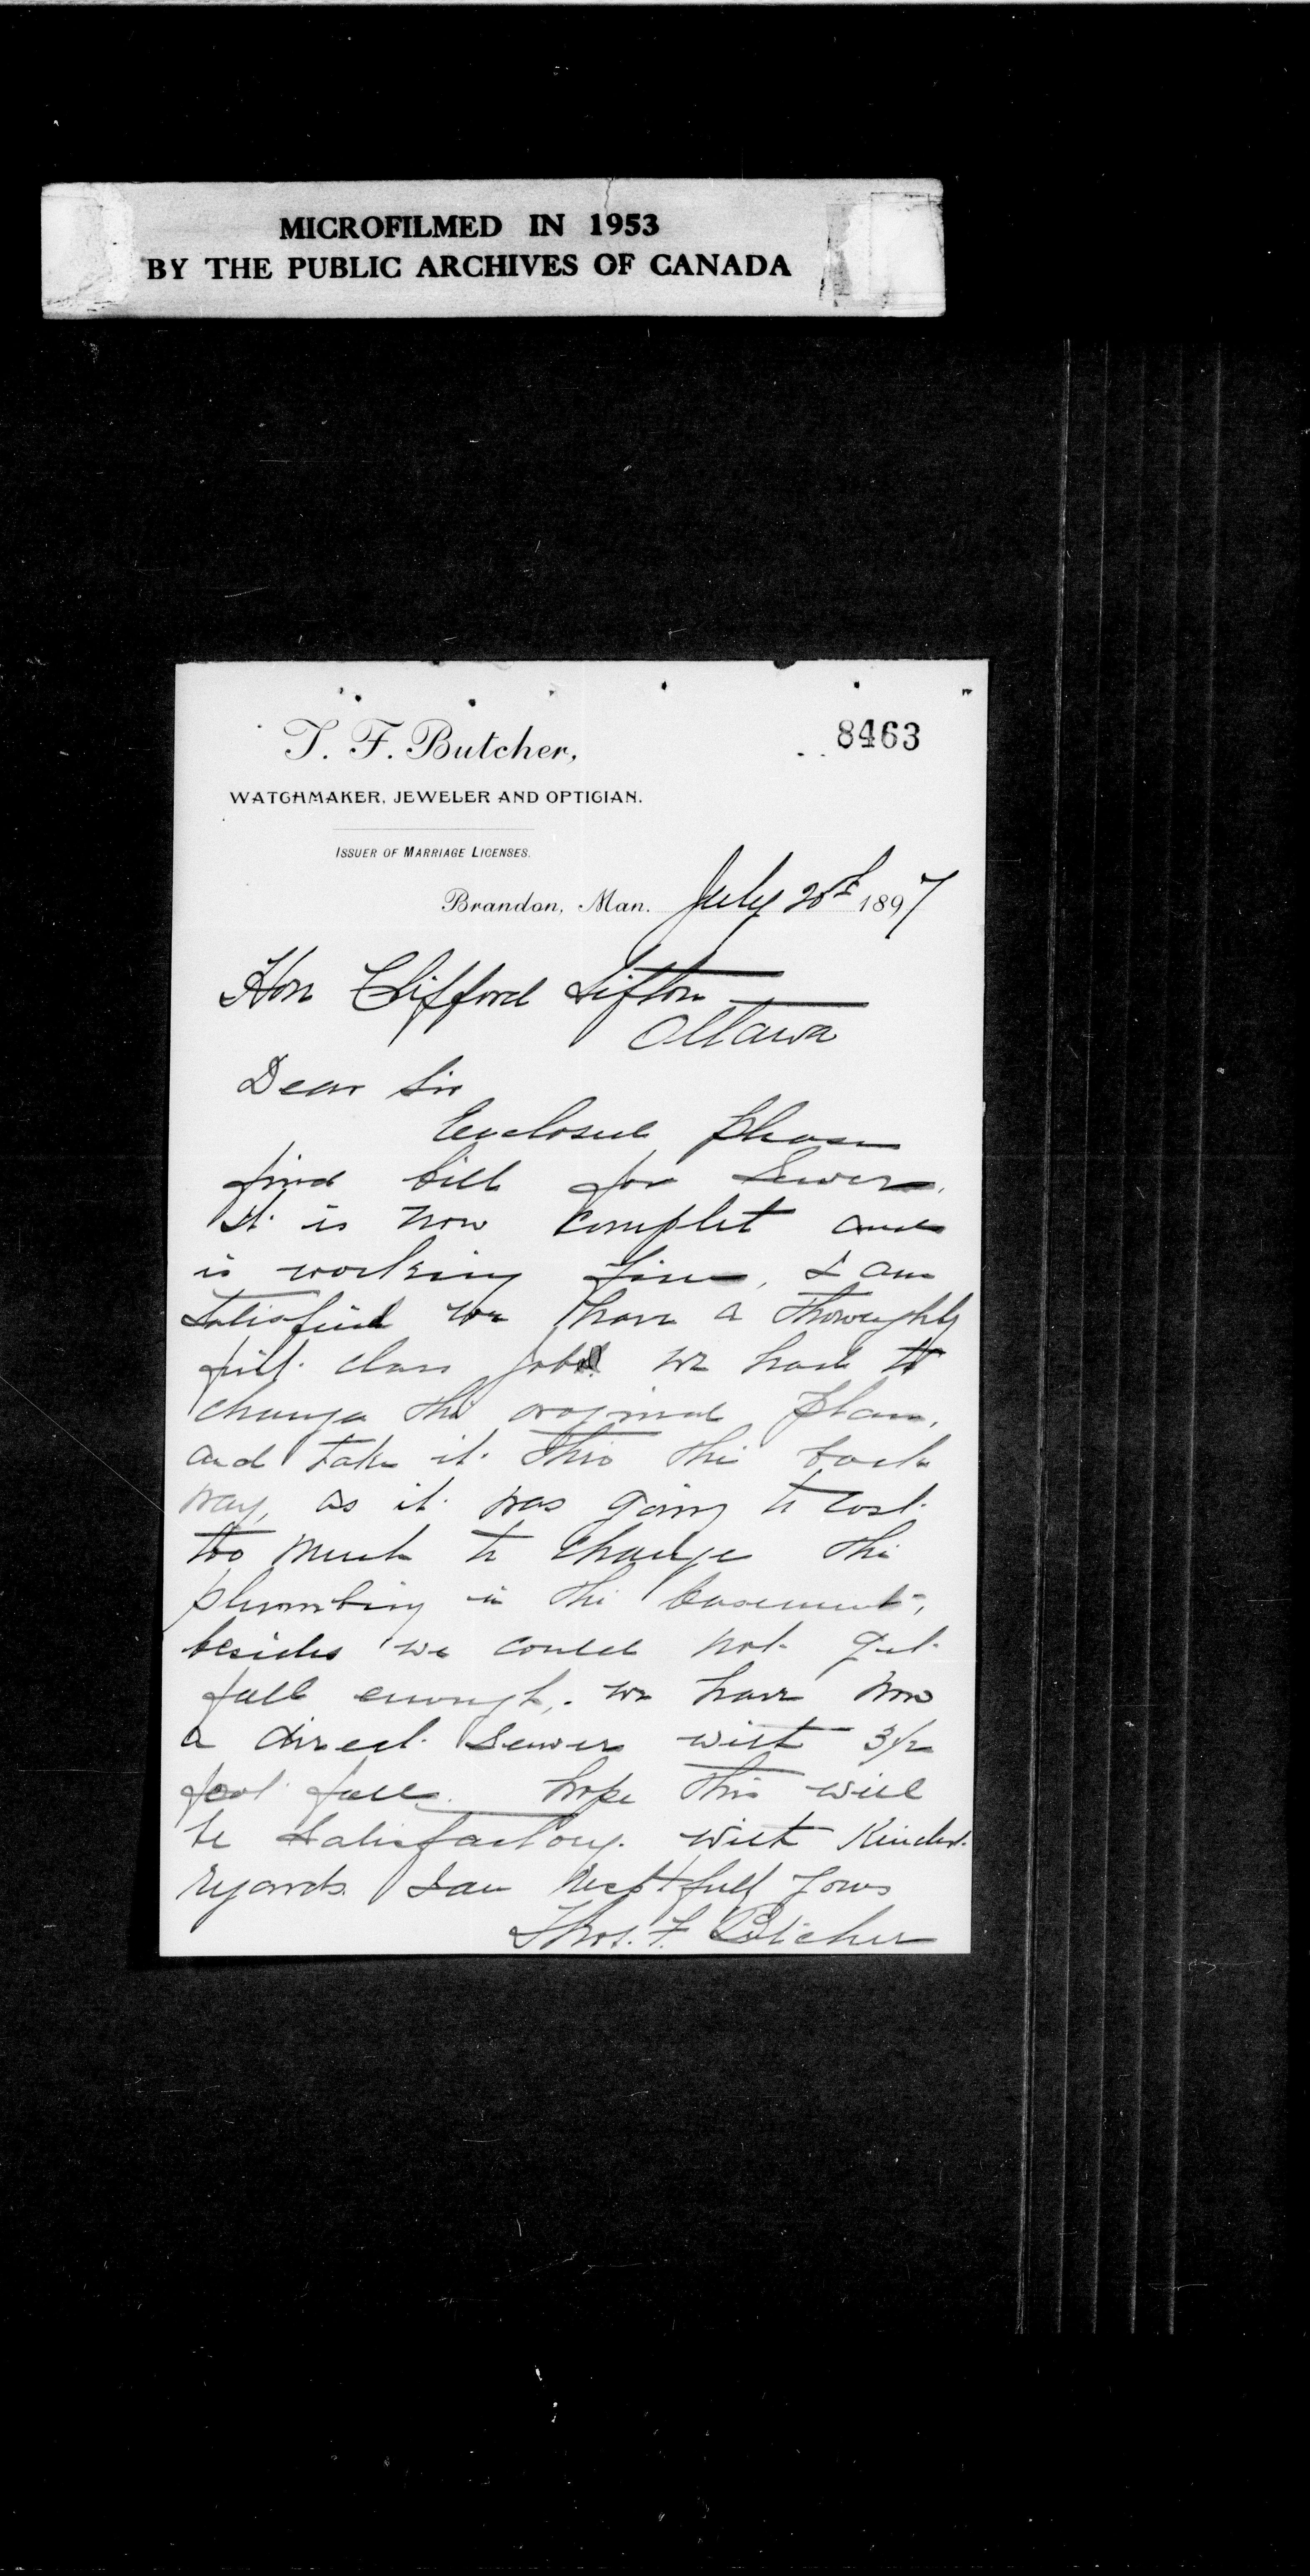 MICROFILMED IN 1953
BY THE PUBLIC ARCHIVES OF CANADA
8463
T. F. Butcher,
WATCHMAKER, JEWELER AND OPTICIAN.
ISSUER OF MARRIAGE LICENSES.
Brandon, Man. July 20th 1897
Hon Clifford Sifton
Ottawa
Dear Sir
Enclosed please
find bill for Sewer.
It is now complet and
is working fine, I am
satisfied we have a thoroughly
first class job. we had to
change the original plan,
and take it thro the back
way, as it was going to cost
too much to change the
plumbing in the basement,
besides we could not get
fall enough, we have now
a direct sewer with 3 1/2
foot fall. hope this will
be satisfactory. with Kindest
regards I am Respt fully yours
Thos. F. Butcher